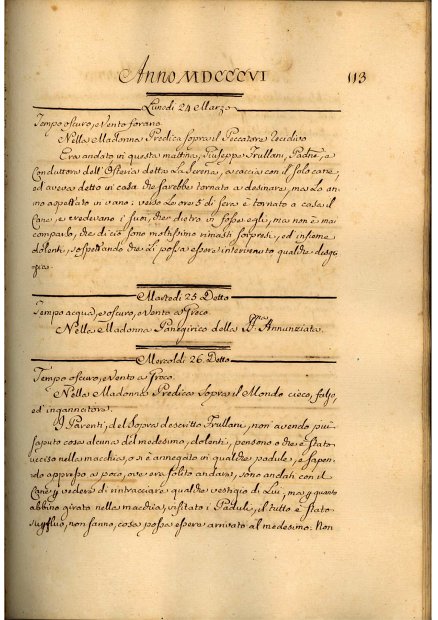 Anno MDCCCVI
113
Lunedì 24 Marzo
Tempo oscuro, e Vento forano.
Nella Madonna Predica sopra il Peccatore recidivo
Era andato in questa mattina, Giuseppe Trullani, Padrne, a
Conduttore dell'Osteria detta La Serena, a caccia con il solo cane,
ed aveva detto in casa che sarebbe tornato a desinare, ma Lo an
no aspettato in vano: verso Le ore 5 di sera è tornato a casa il
Cane, e credevano i suoi, che dietro vi fosse egli, ma non è mai
comparso, che di ciò sono moltissimo rimasti sorpresi, ed insieme
dolenti, sospettando che Li possa essere intervenuto qualche
Martedì 25 Detto
Tempo acqua, e oscuro, e Vento a Greco.
Nella Madonna Panegirico della Annunziata.
Mercoldì 26. Detto
Tempo oscuro, e Vento a Greco.
Nella Madonna Predica Sopra il Mondo cieco, falso,
ed ingannatore.
I Parenti, del Sopra descritto Trullani, non avendo più
saputo cosa alcuna del medesimo, dolenti, pensono o che è stato
ucciso nella macchia, o si è annegato in qualche padule, e sapen
do appresso a poco, ove era solito andare, sono andati con il
Cane p vedere di rintracciare qualche vestigio di Lui, ma p quanto
abbino girato nella macchia, visitato i Paduli, il tutto è stato
supfluo, non sanno, cosa possa essere arrivato al medesimo: Non